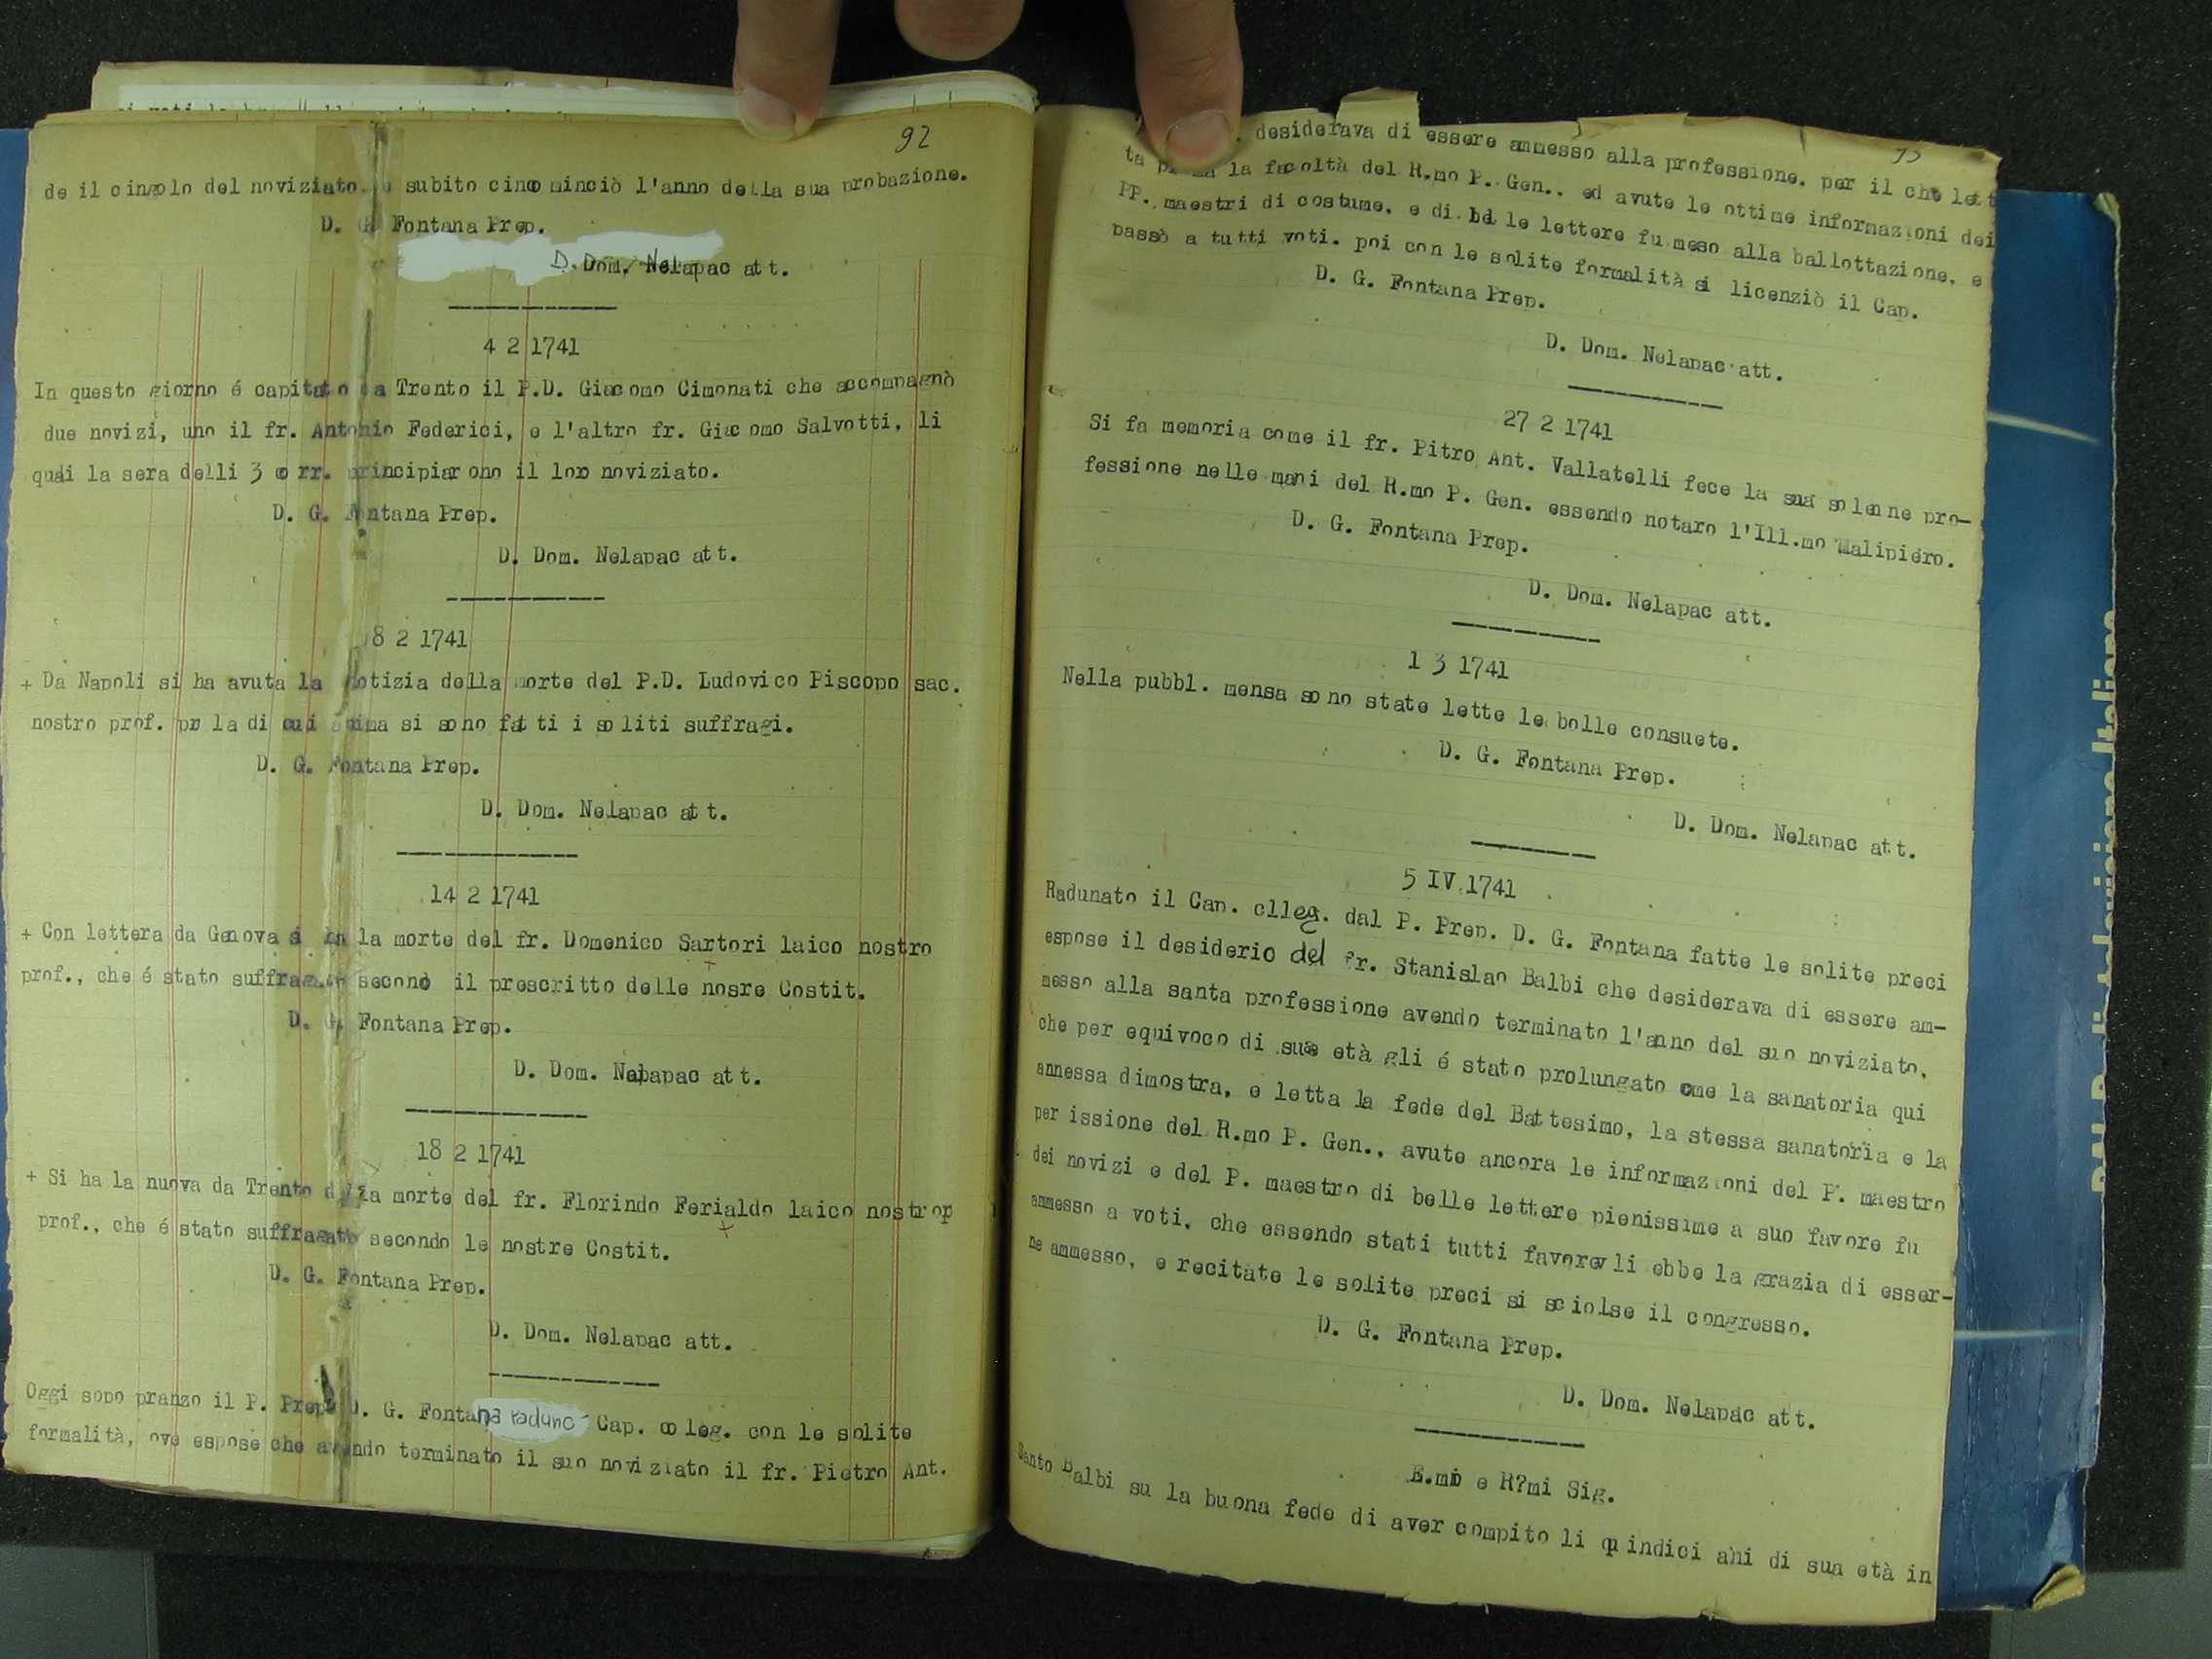 92
de il cingolo del noviziato. e subito cinco minciò l'anno della sua probazione.
D. G. Fontana Prep.
D. Dom. Nelapac att.
4 2 1741
In questo giorno é capitato da Trento il P.D. Giacomo Cimonati che accompagnò
due novizi, uno il fr. Antonio Federici, e l'altro fr. Giacomo Salvotti, li
quai la sera delli 3 corr. principiarono il loro noviziato.
D. G. Fontana Prep.
D. Dom. Nelapac att.
8 2 1741
+ Da Napoli si ha avuta la notizia della morte del P.D. Ludovico Piscopo sac.
nostro prof. pr la di cui anima si sono fatti i soliti suffragi.
D. G. Fontana Prep.
D. Dom. Nelapac att.
14 2 1741
+ Con lettera da Genova si ha la morte del fr. Domenico Sartori laico nostro
prof., che é stato suffragato secondo il prescritto delle nosre Costit.
D. G. Fontana Prep.
D. Dom. Nelapac att.
18 2 1741
+ Si ha la nuova da Trento della morte del fr. Florindo Ferialdo laico nostrop
prof., che é stato suffragato secondo le nostre Costit.
D. G. Fontana Prep.
D. Dom. Nelapac att.
Oggi sopo pranzo il P. Prep. D. G. Fontana radunò Cap. colleg. con le solite
formalità, ove espose che avendo terminato il suo noviziato il fr. Pietro Ant.
desiderava di essere ammesso alla professione. per il che lett
ta prima la facoltà del R.mo P. Gen., ed avute le ottime informazioni dei
PP. maestri di costume, e di bel le lettere fu meso alla ballottazione, e
passò a tutti voti. poi con le solite formalità si licenziò il Cap.
D. G. Fontana Prep.
D. Dom. Nelapac att.
27 2 1741
Si fa memoria come il fr. Pitro Ant. Vallatelli fece la sua solenne pro-
fessione nelle mani del R.mo P. Gen. essendo notaro l'Ill.mo Malipiero.
D. G. Fontana Prep.
D. Dom. Nelapac att.
1 3 1741
Nella pubbl. mensa sono state lette le bolle consuete.
D. G. Fontana Prep.
D. Dom. Nelapac att.
5 IV.1741
Radunato il Cap. clleg. dal P. Prep. D. G. Fontana fatte le solite preci
espose il desiderio del fr. Stanislao Balbi che desiderava di essere am-
messo alla santa professione avendo terminato l'anno del suo noviziato,
che per equivoco di sua età gli é stato prolungato ome la sanatoria qui
annessa dimostra, e letta la fede del Battesimo, la stessa sanatoria e la
per issione del R.mo P. Gen., avute ancora le informazioni del P. maestro
dei novizi e del P. maestro di belle lettere pienissime a suo favore fu
ammesso a voti, che essendo stati tutti favorevli ebbe la grazia di esser-
ne ammesso, e recitate le solite preci si sciolse il congresso.
D. G. Fontana Prep.
D. Dom. Nelapac att.
E.mi e R?mi Sig.
Santo Balbi su la buona fede di aver compito li quindici ani di sua età in